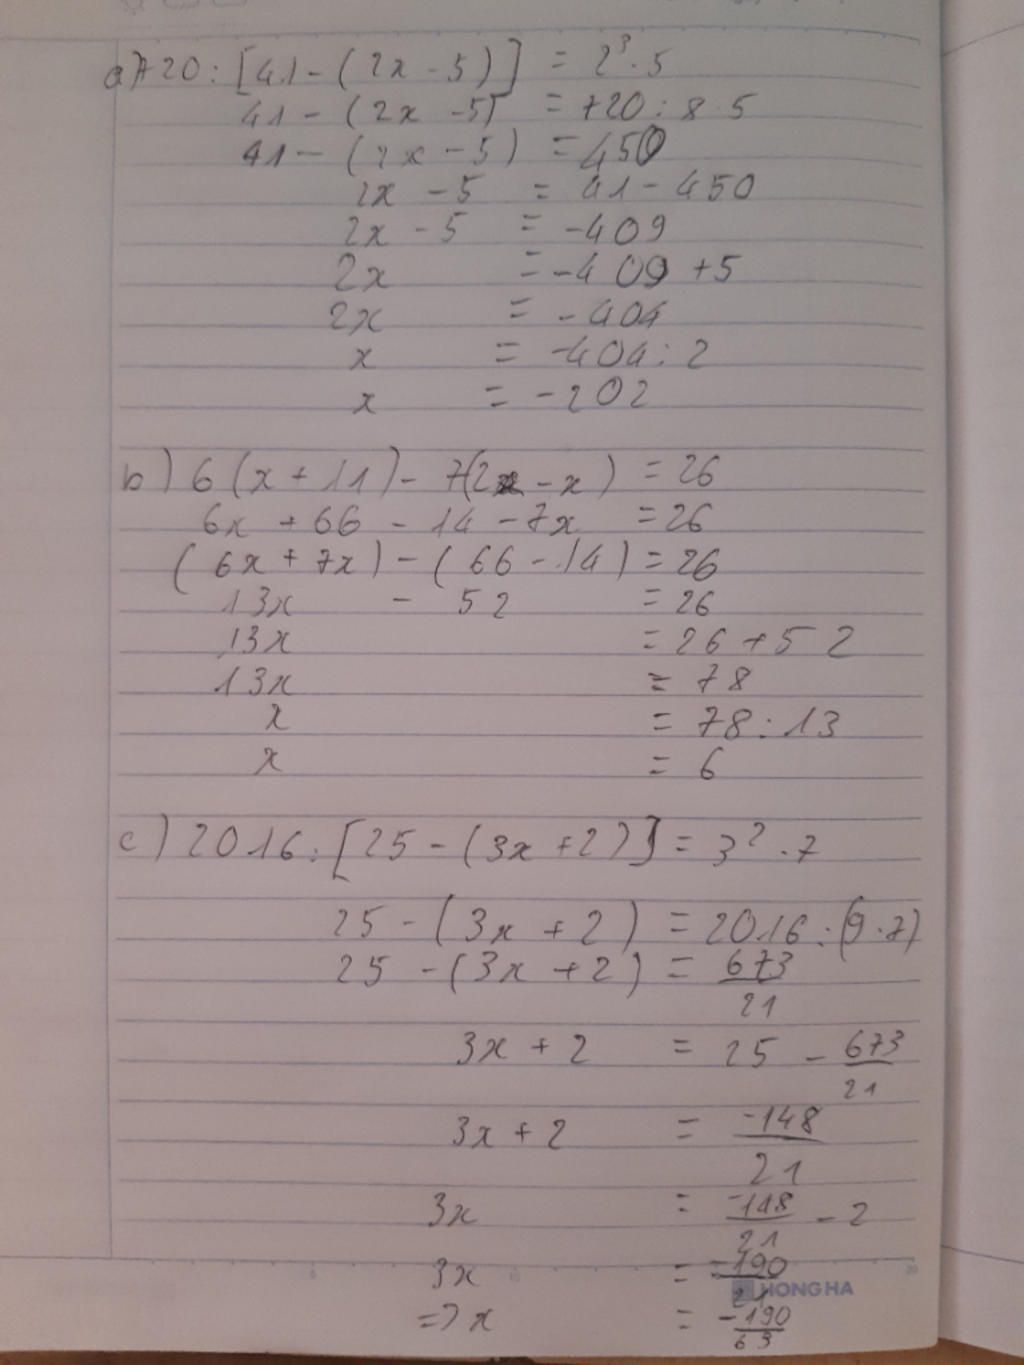 a) 720 : [41 - (2x - 5)] = 2³ . 5
41 - (2x - 5) = 720 : 8 . 5
41 - (2x - 5) = 450
2x - 5 = 41 - 450
2x - 5 = -409
2x = -409 + 5
2x = -404
x = -404 : 2
x = -202
b) 6(x + 11) - 7(2 - x) = 26
6x + 66 - 14 - 7x = 26
(6x + 7x) - (66 - 14) = 26
13x - 52 = 26
13x = 26 + 52
13x = 78
x = 78 : 13
x = 6
c) 2016 : [25 - (3x + 2)] = 3² . 7
25 - (3x + 2) = 2016 : (9 . 7)
25 - (3x + 2) = 673/21
3x + 2 = 25 - 673/21
3x + 2 = -148/21
3x = -148/21 - 2
3x = -190/21
=> x = -190/63
HONG HA